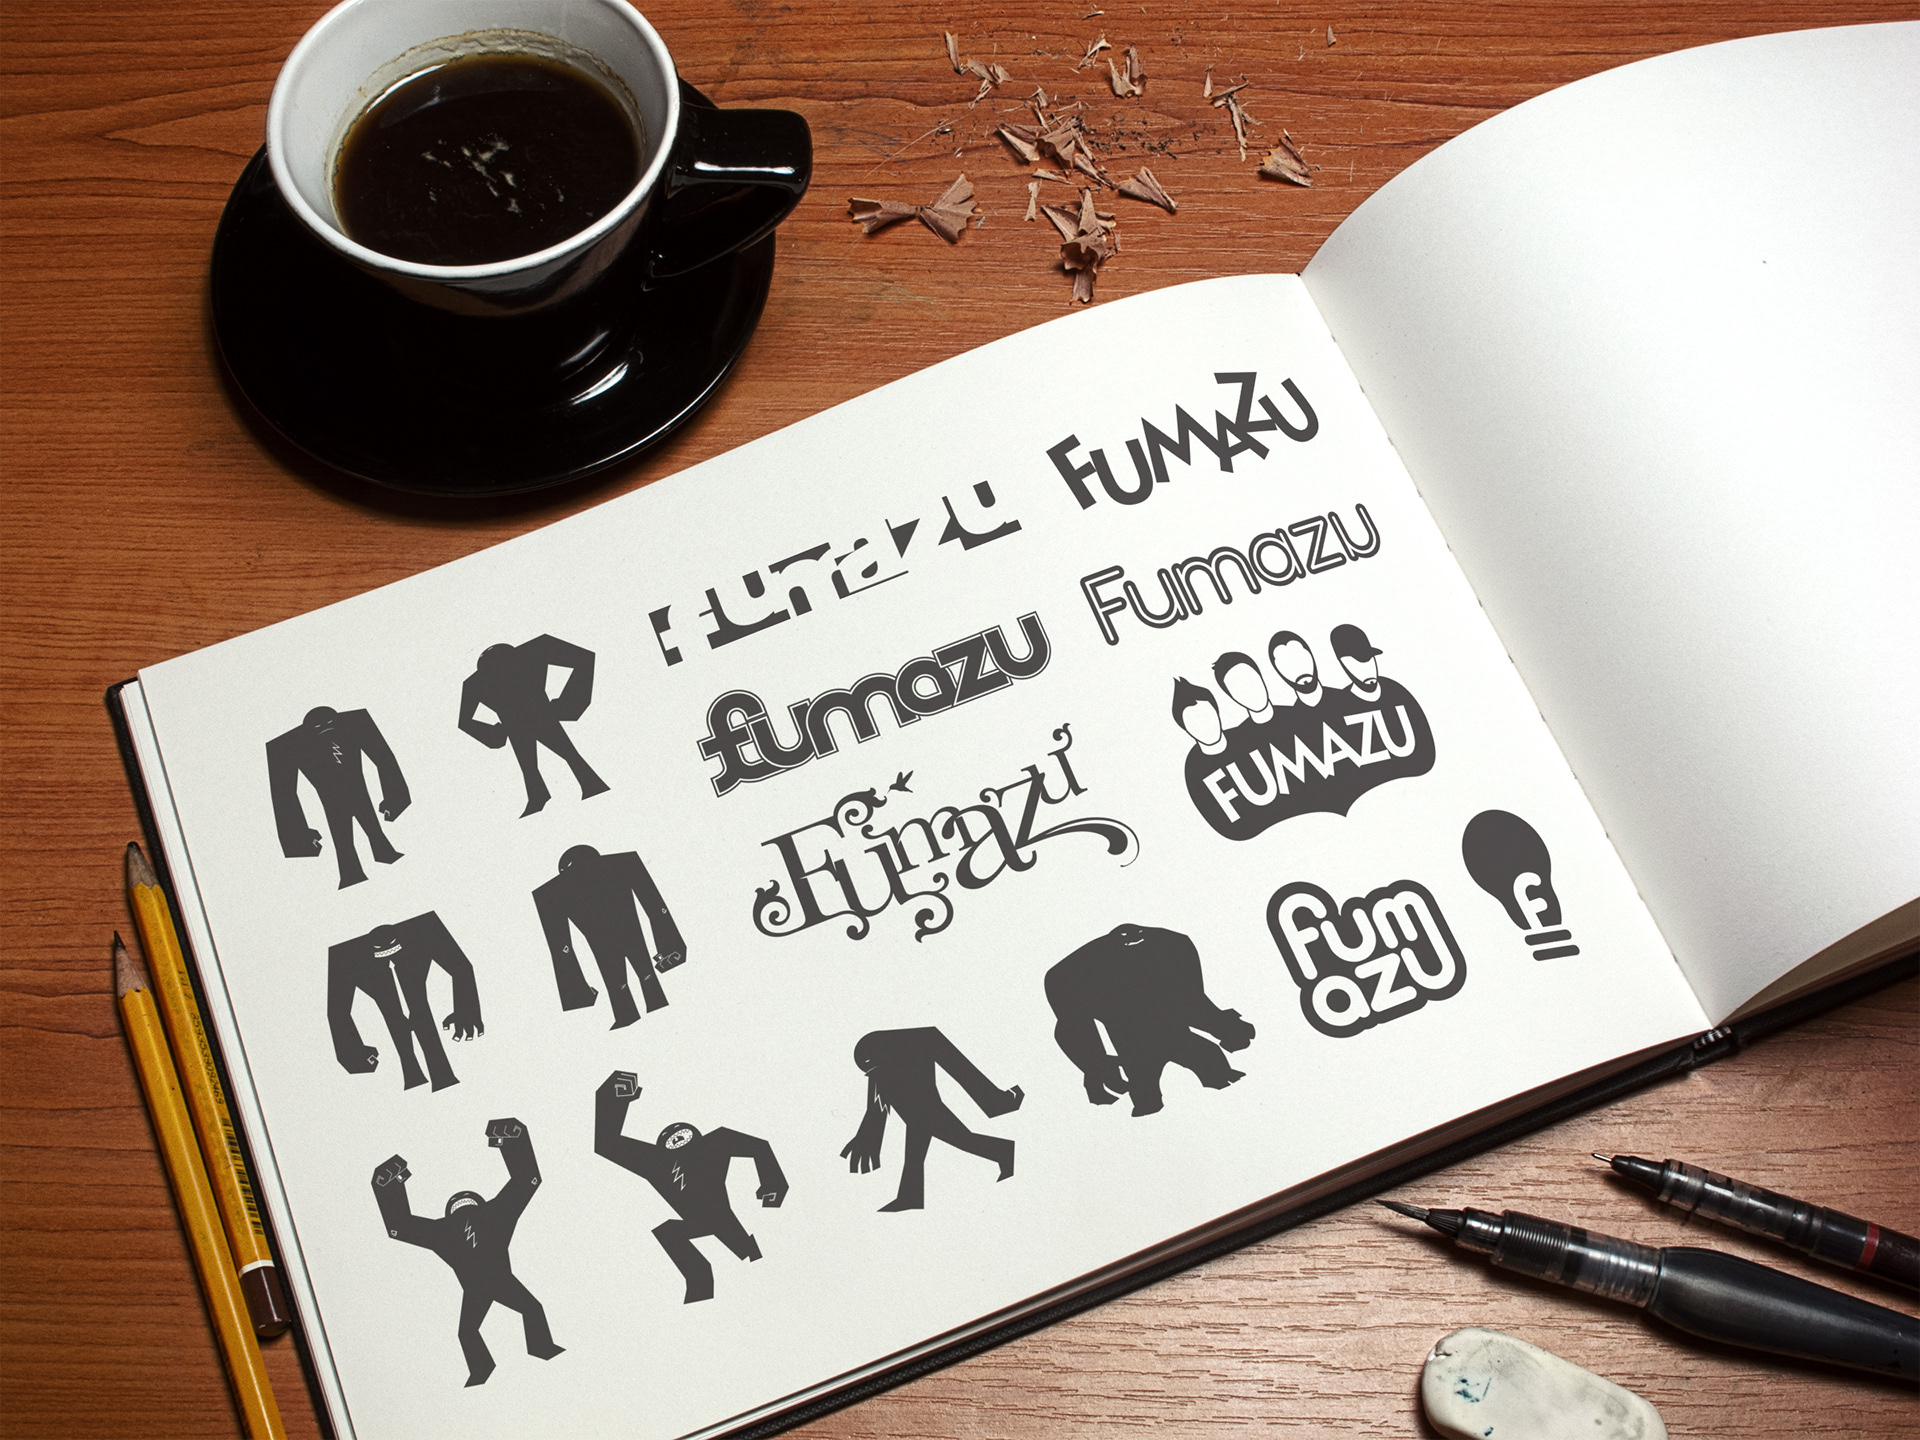 Fumazu
FUMAZU
Fumazu
fumazu
Fumazu
FUMAZU
fum
azu
f